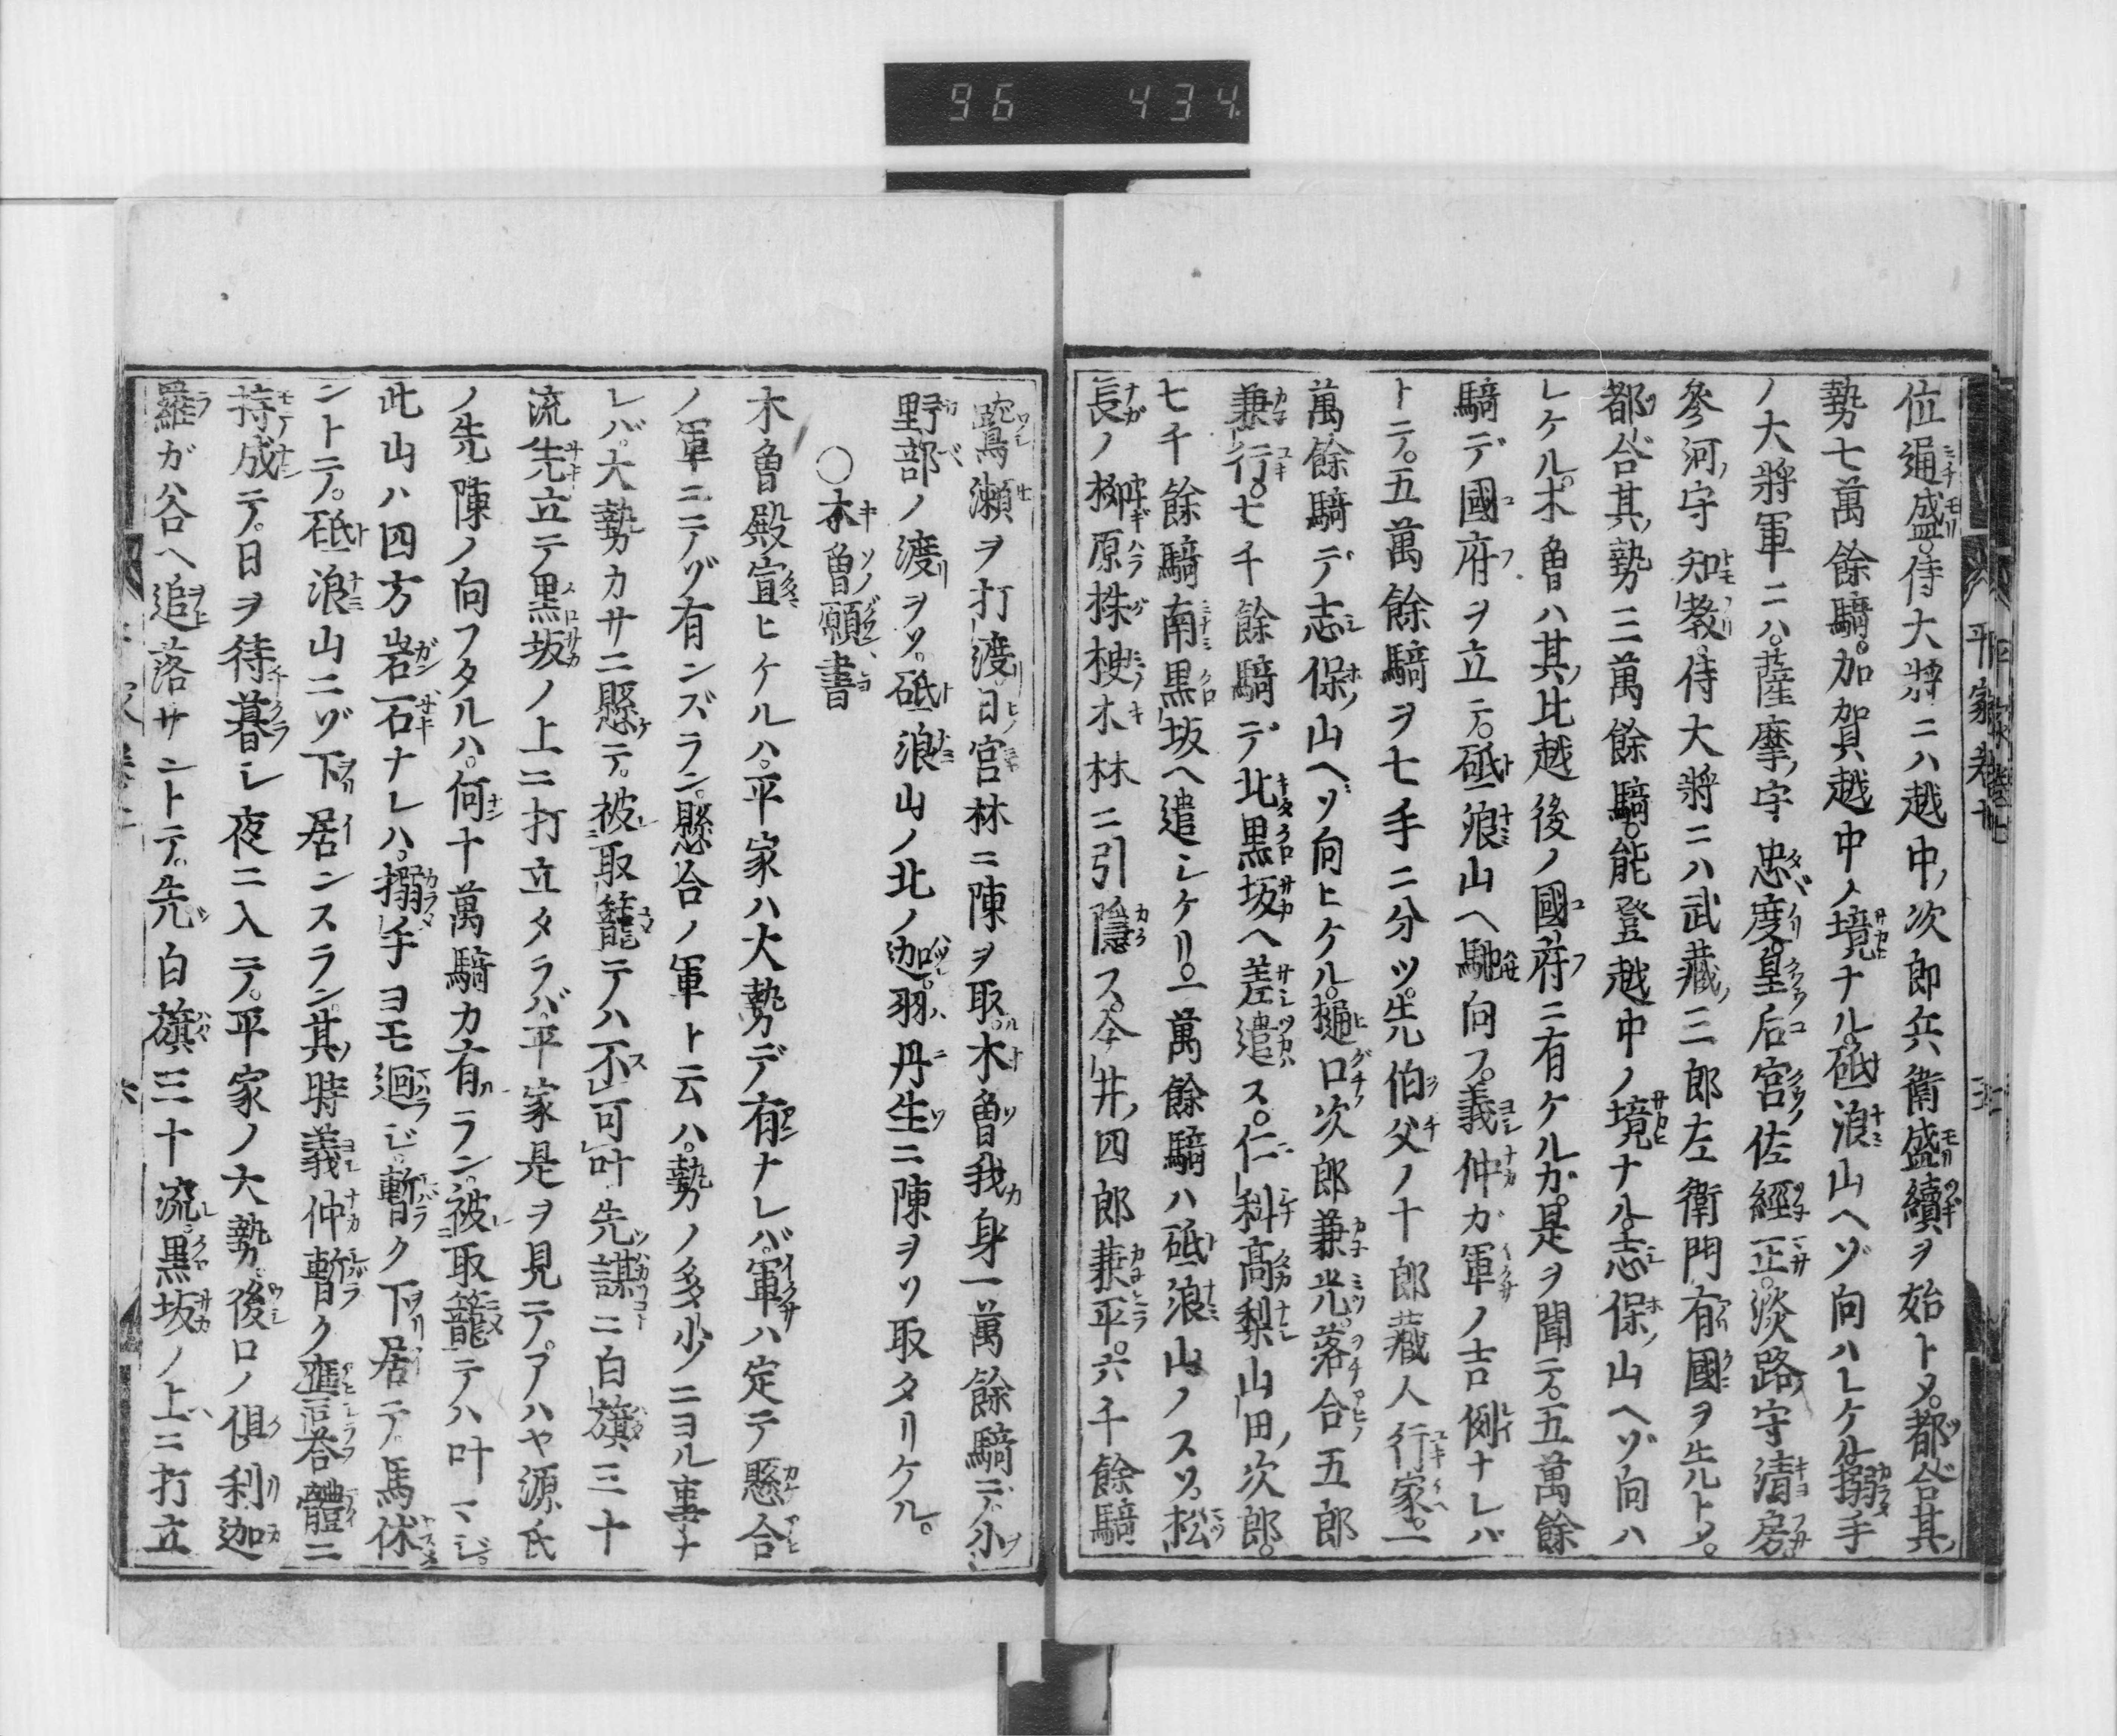 96 434
平家卷七
位通盛。侍大將ニハ越中ノ次郎兵衛盛續ヲ始トメ。都合其ノ
勢七萬餘騎。加賀越中ノ境ナル。砥浪山ヘゾ向ハレケル。搦手
ノ大將軍ニハ。薩摩ノ守忠度。皇后宮佐經正。淡路ノ守淸房。
參河ノ守知教。侍大將ニハ武藏ノ三郎左衛門有國ヲ先トメ。
都合其ノ勢三萬餘騎。能登越中ノ境ナル。志保ノ山ヘゾ向ハ
レケル。木曽ハ其ノ比越後ノ國府ニ有ケルガ。是ヲ聞テ。五萬餘
騎デ國府ヲ立テ。砥浪山ヘ馳向フ。義仲ガ軍ノ吉例ナレバ
トテ。五萬餘騎ヲ七手ニ分ツ。先伯父ノ十郎藏人行家。一
萬餘騎デ志保ノ山ヘゾ向ヒケル。樋口ノ次郎兼光。落合五郎
兼行。七千餘騎デ北黒坂ヘ差遣ス。仁科高梨山田ノ次郎。
七千餘騎南黒坂ヘ遣シケリ。一萬餘騎ハ砥浪山ノスソ。松
長ノ栁原株梗木林ニ引隱ス。今井ノ四郎兼平。六千餘騎
鷲瀬ヲ打渡日宮林ニ陳ヲ取ル。木曽我身一萬餘騎デ小
野部ノ渡ヲソ。砥浪山ノ北ノ迦。羽丹生ニ陳ヲソ取タリケル。
〇木曽願書
木曽殿宣ヒケルハ。平家ハ大勢デ有ナレバ。軍ハ定テ懸合
ノ軍ニテゾ有ンズラン。懸合ノ軍ト云ハ。勢ノ多少ニヨル事ナ
レバ。大勢カサニ懸テ。被取籠テハ不可叶先謀ニ白旗三十
流先立テ黒坂ノ上ニ打立タラバ。平家是ヲ見テ。アハヤ源氏
ノ先陳ノ向フタルハ。何十萬騎カ有ラン。被取籠テハ叶マジ。
此山ハ四方岩石ナレハ。搦手ヨモ廻ジ。暫ク下居テ馬休
ントテ。砥浪山ニゾ下居ンスラン。其ノ時義仲暫ク應荅體ニ
持成テ。日ヲ待暮シ夜ニ入テ。平家ノ大勢。後ロノ倶利迦
羅ガ谷ヘ追落サントテ。先白旗三十流。黒坂ノ上ニ打立